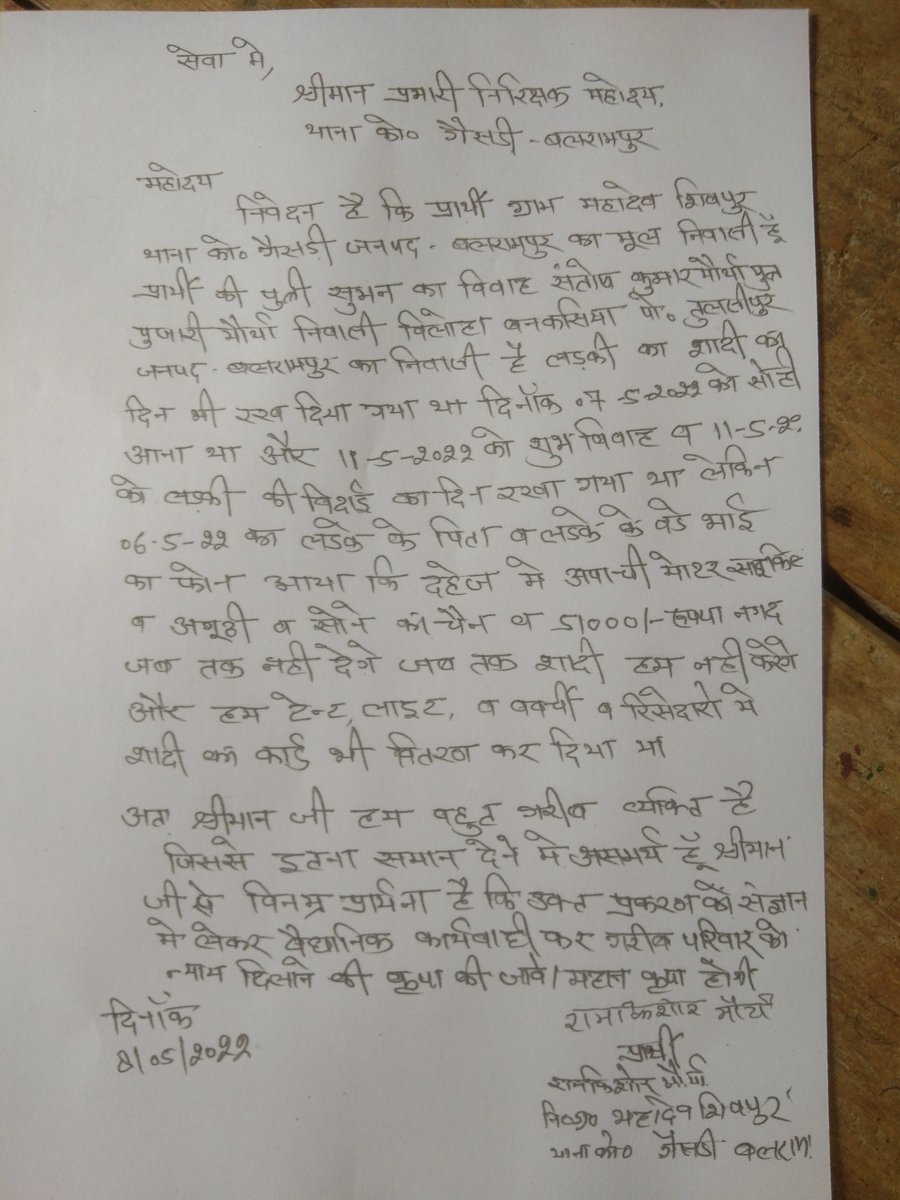 सेवा मे,
श्रीमान प्रभारी निरिक्षक महोदय,
थाना को० गैसडी - बलरामपुर
महोदय
निवेदन है कि प्रार्थी ग्राम महादेव शिवपुर
थाना को० गैसड़ी जनपद - बलरामपुर का मूल निवासी हूँ
प्रार्थी की पुत्री सुमन का विवाह संतोष कुमार मौर्या पुत्र
पुजारी मौर्या निवासी विलोहा बनकसिया पो० तुलसीपुर
जनपद - बलरामपुर का निवासी है लड़की का शादी का
दिन भी रख दिया गया था दिनॉक ०7-5-2022 को
आना था और 11-5-2022 को शुभ विवाह व 11-5-22
को लड़की की विदाई का दिन रखा गया था लेकिन
०6-5-22 का लडके के पिता व लडके के वडे भाई
का फोन आया कि दहेज मे अपाची मोटर साइकिल
व अगूठी व सोने का चैन व 51000/- रूपया नगद
जब तक नही देगे जब तक शादी हम नही करेगे
और हम टेन्ट, लाइट, व वर्ची व रिसेदारो मे
शादी का कार्ड भी वितरण कर दिया था
अतः श्रीमान जी हम बहुत गरीब व्यक्ति है
जिससे इतना समान देने मे असमर्थ हूँ श्रीमान
जी से विनम्र प्रार्थना है कि उक्त प्रकरण को संज्ञान
मे लेकर वैधानिक कार्यवाही कर गरीब परिवार को
न्याय दिलाने की कृपा की जावे। महान कृपा होगी
दिनॉक
8/05/2022
रामकिशोर मौर्य
प्रार्थी
रामकिशोर मौर्या
नि०ग्रा० महादेव शिवपुर
थाना को० गैसडी बलराम